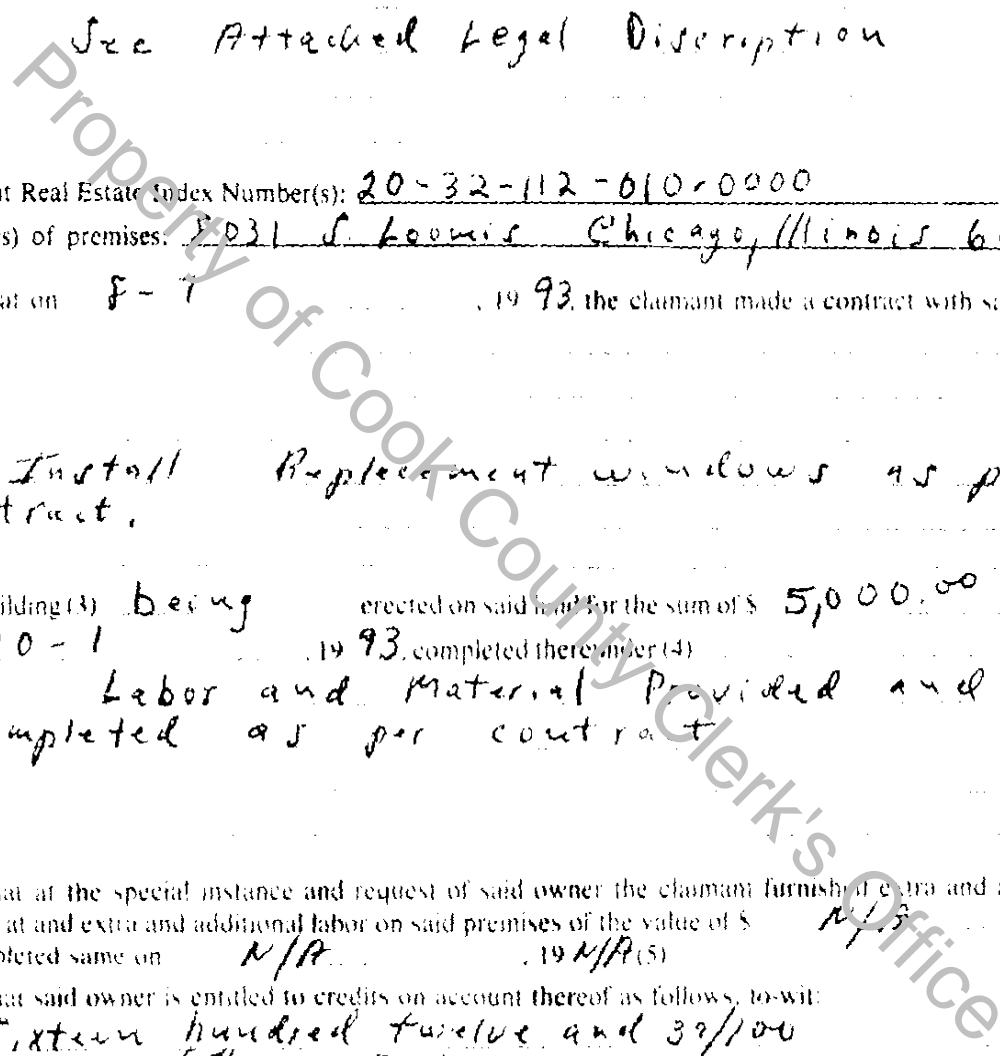 See Attached Legal Discription
at Real Estate Index Number(s): 20-32-112-010-0000
s) of premises: 8031 S. Loomis Chicago, Illinois 6
at on 8-7 , 19 93, the claimant made a contract with s
Install Replacement windows as p
tract.
ilding (3) being erected on said land for the sum of $ 5,000.00
0-1 , 19 93, completed thereunder (4)
Labor and Material Provided and
mpleted as per contract
at at the special instance and request of said owner the claimant furnished extra and a
at and extra and additional labor on said premises of the value of $ N/A
pleted same on N/A , 19 N/A (5)
at said owner is entitled to credits on account thereof as follows, to-wit:
Sixteen hundred twelve and /100
Property of Cook County Clerk's Office